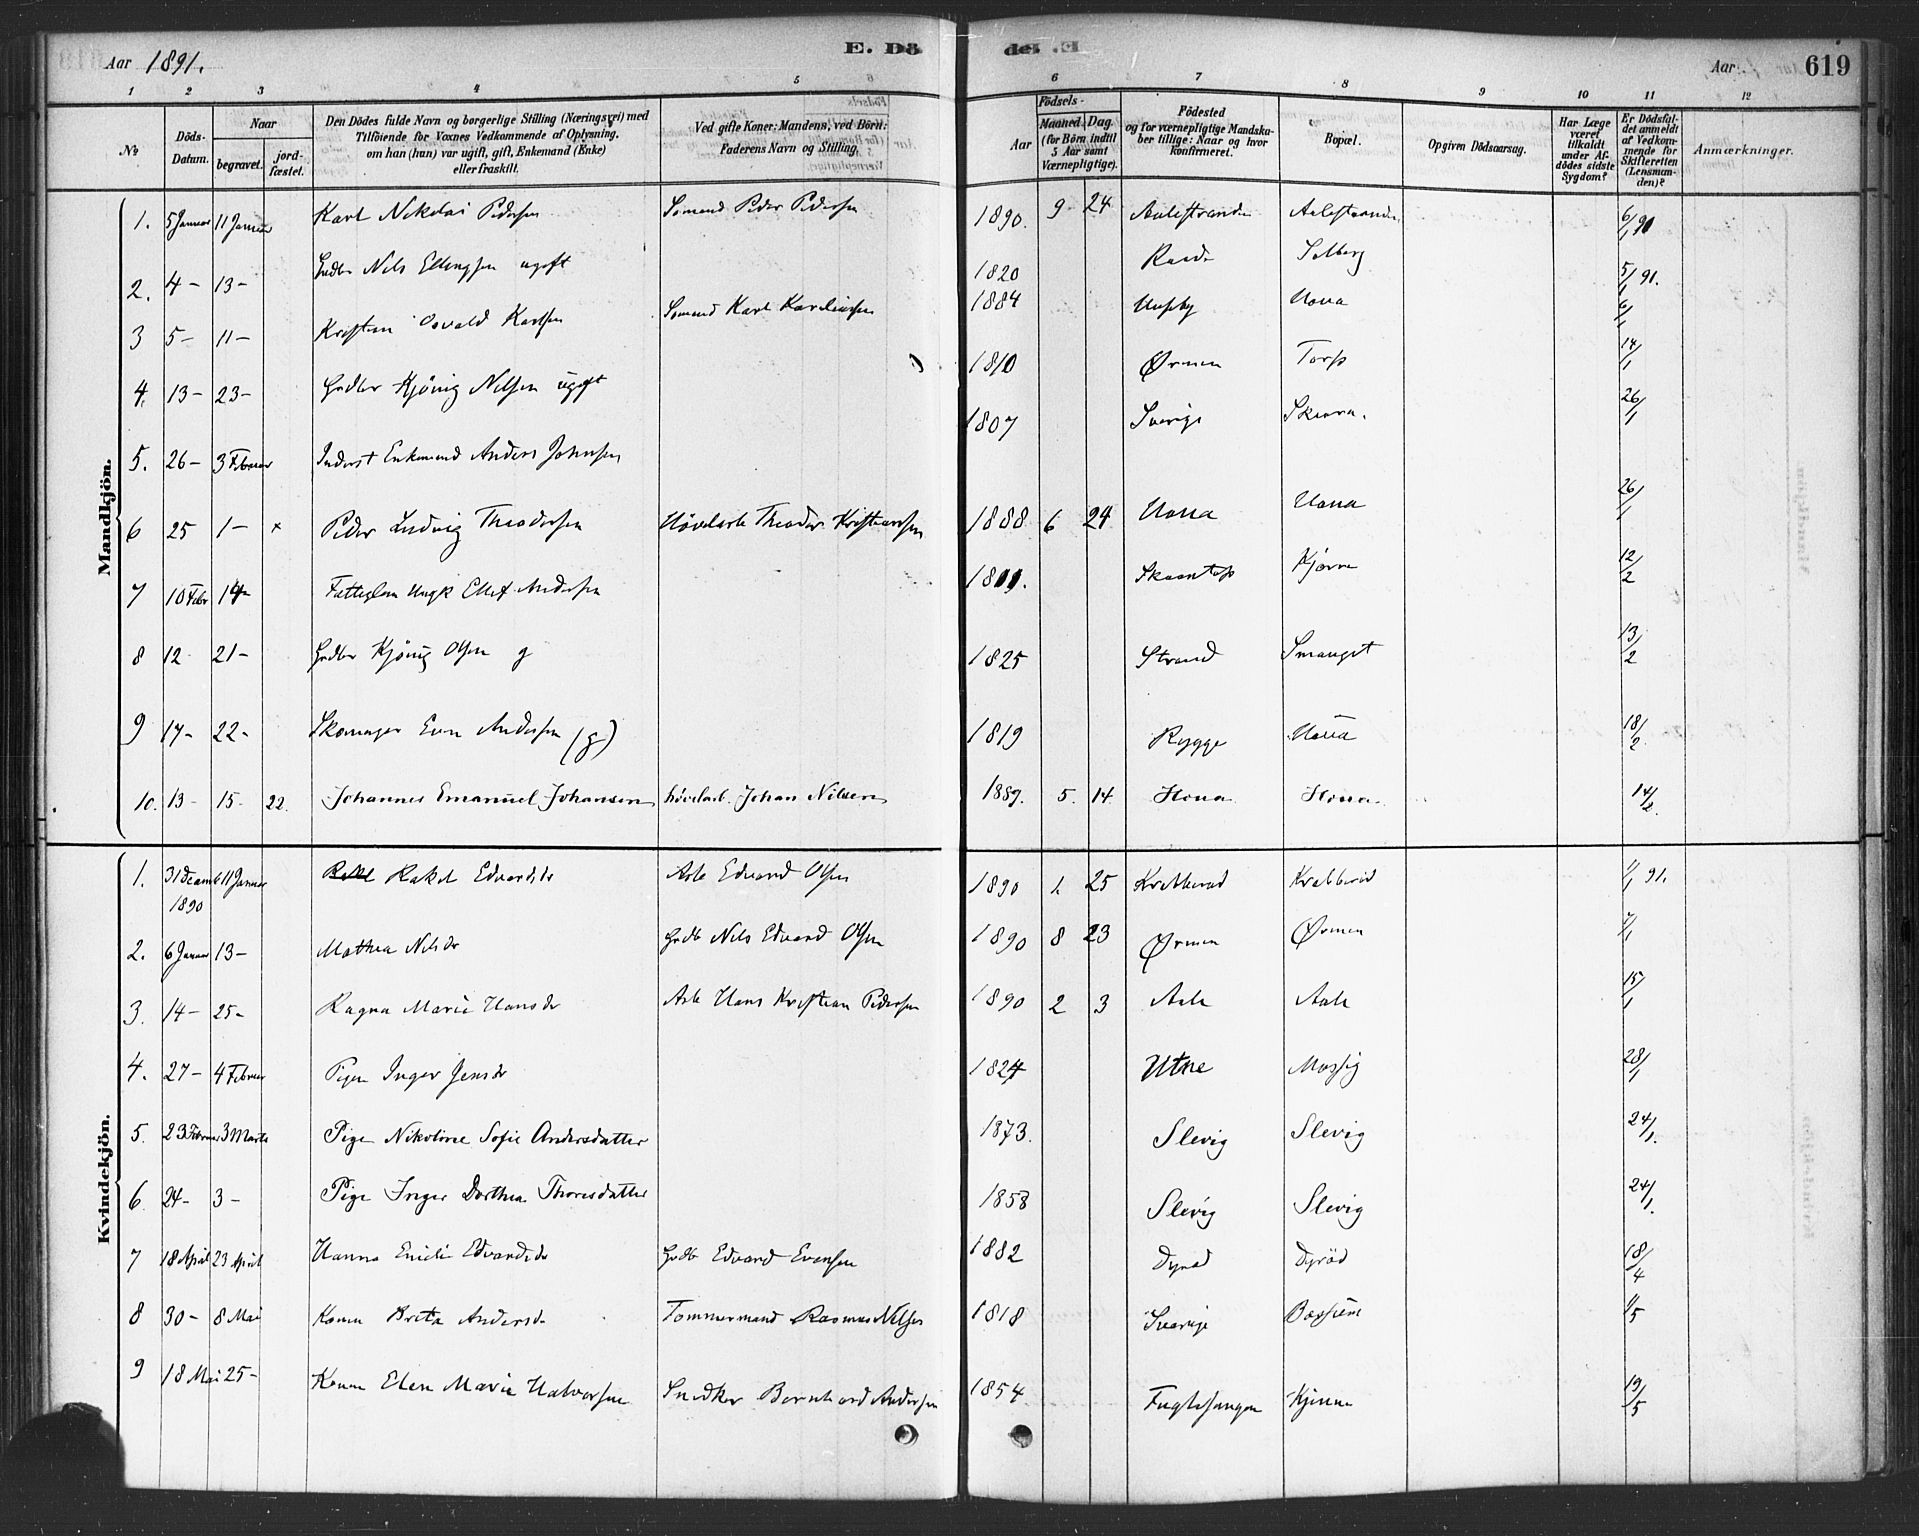 Aar 1891. E. Dö
de. E Aar 619
1 2 3 4 5 6 7 8 9 10 11 12
No Döds-Datum. Naar begravet. jord-fæstet. Den Dödes fulde Navn og borgerlige Stilling (Næringsvei) med Tilföiende for Voxnes Vedkommende af Oplysning, om han (hun) var ugift, gift, Enkemand (Enke) eller fraskilt. Ved gifte Koner: Mandens, ved Börn: Faderens Navn og Stilling. Aar Födsels-Maaned. Dag. (for Börn indtil 5 Aar samt Værnepligtige). Födested og for værnepligtige Mandskaber tillige: Naar og hvor konfirmeret. Bopæl. Opgiven Dödsaarsag. Har Læge været tilkaldt under Afdödes sidste Sygdom? Er Dödsfaldet anmeldt af Vedkommende for Skifteretten (Lensmanden)? Anmærkninger.
Mandkjön.
1. 5 Januar 11 Januar Karl Nikolai Pedersen Sömand Peder Pedersen 1890. 9 24 6/1 91
2. 4 - 13 - Nils Ellingsen ugift 1820 Raade Solberg 5/1 91.
3 5 - 11 - Kristian Osvald Karlsen Sömand Karl 1884 Huseby Hona 6/1
4. 13 - 23 - Nilsen ugift 1810 Ørmen Torp 14/1
5. 26 - 3 Februar Inderst Enkemand Anders Johnsen 1807 Sverige 26/1
6 25 1 - x Peder Ludvig Theodorsen Hövelarb Theodor Kristiansen 1888 6 24 Hona Hona 26/1
7 10 Febr 14 - Ungk Ellef Andersen 12/2
8 12 21 - Olsen g 1825 Strand Smauget 13/2
9 17 - 22 - Skomager Even Andersen (g) 1819 Rygge Hona 18/2
10. 13 - 15 - 22. Johannes Emanuel Johansen hövelarb. Johan Nilsen 1889. 5. 14 Hona Hona 14/2.
Kvindekjön.
1. 31 Decemb 1890 11 Januar Rakel Edvardsdr Arb Edvard Olsen 1890 1. 25 Krabberød Krabberød 1/1 91.
2. 6 Januar 13 - Mathea Nilsdr Grdb Nils Edvard Olsen 1890 8 23 Ørmen Ørmen 7/1
3. 14 - 25 - Ragna Marie Hansdr Arb Hans Kristian Pedersen 1890 2 3 Aale Aale 15/1
4. 27 - 4 Februar Pigen Inger Jensdr 1824 Utne Mossig 28/1
5. 23 Februar 3 Marts Pige Nikoline Sofie Andersdatter 1873. Slevig Slevig 24/1.
6 24 - 3 - Pige Inger Dorthea Thoresdatter 1858 Slevig Slevig 24/1.
7 18 April 23 April Hanna Emilie Edvardsdr Grdb Edvard Evensen 1882 Dyrød Dyrød 18/4
8 30 - 8 Mai Konen Brita Andersdr Tømmermand Rasmus Nilsen 1818 Sverige 1/5
9 18 Mai 25 - Konen Elen Marie Halvorsen Snedker Bernhard Andersen 1854 Fuglesangen 19/5